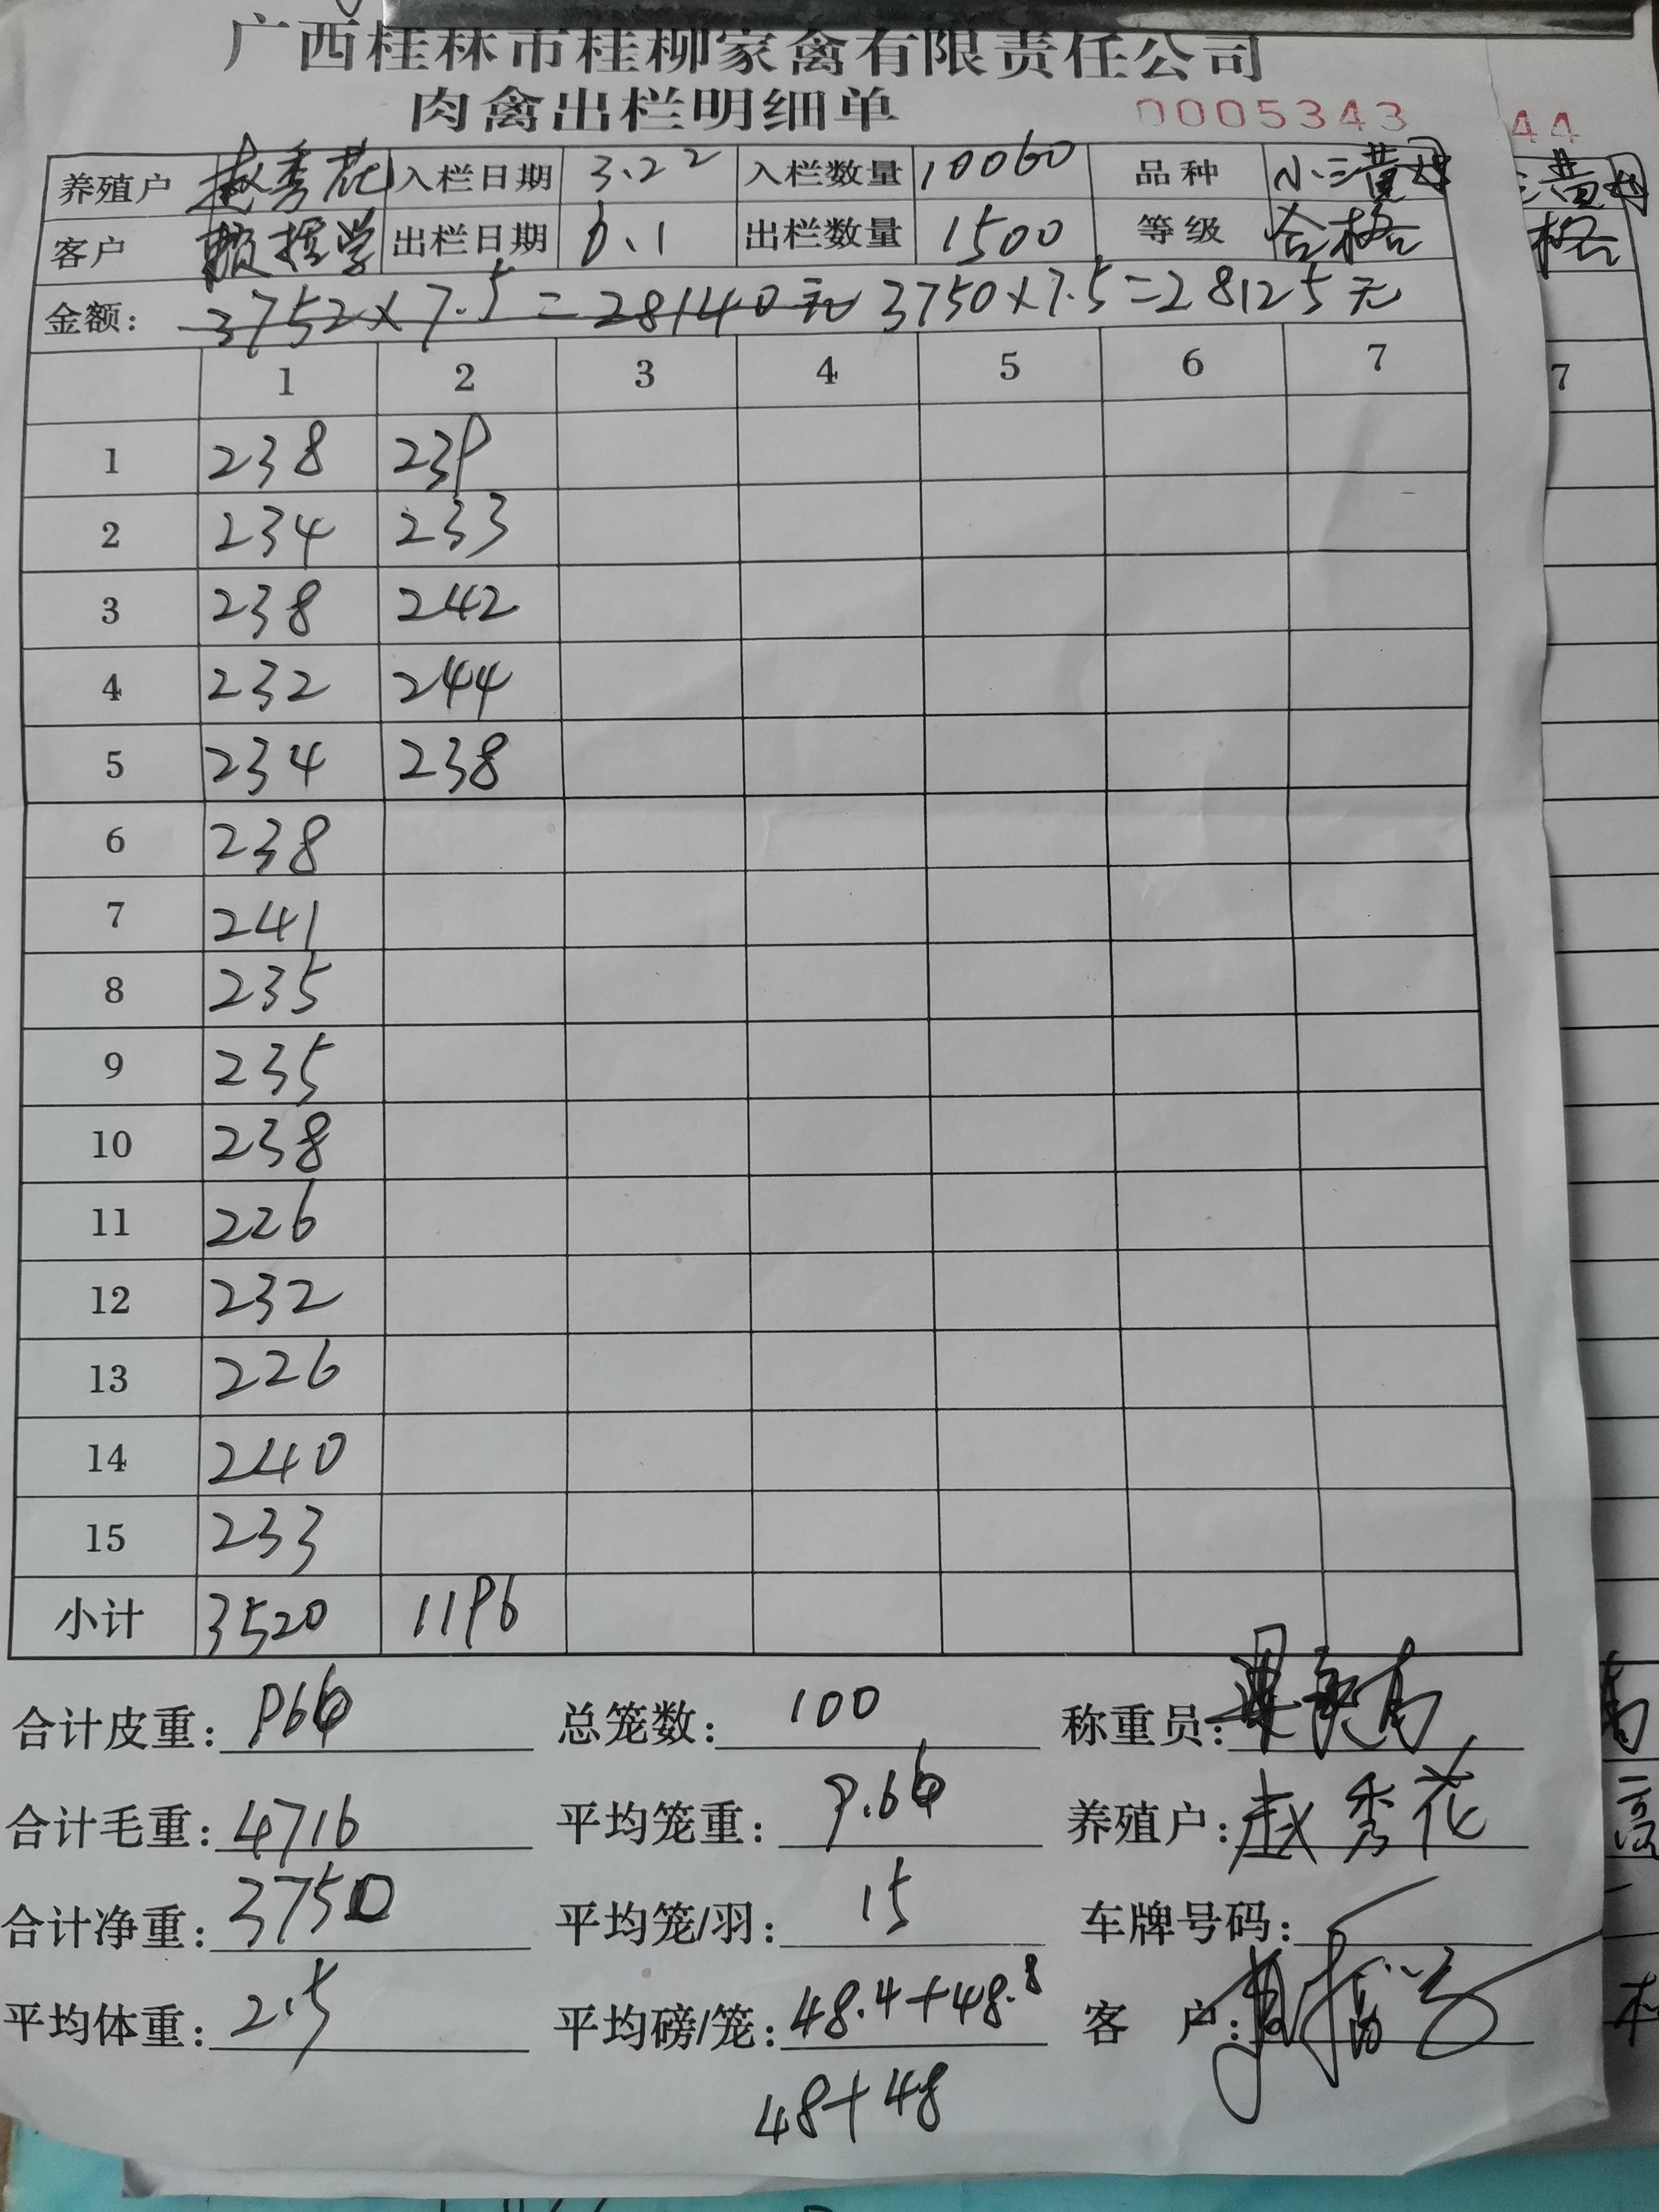 广西桂林市桂柳家禽有限责任公司
肉禽出栏明细单 0005343 44
养殖户 赵秀花 入栏日期 3.22 入栏数量 10060 品种 小三黄母 三黄母
客户 赖振学 出栏日期 6.1 出栏数量 1500 等级 合格 格
金额: 3752×7.5=28140元 3750×7.5=28125元
1 2 3 4 5 6 7 7
1 238 239
2 234 233
3 238 242
4 232 244
5 234 238
6 238
7 241
8 235
9 235
10 238
11 226
12 232
13 226
14 240
15 233
小计 3520 1196
合计皮重: 966 总笼数: 100 称重员:
合计毛重: 4716 平均笼重: 9.66 养殖户: 赵秀花
合计净重: 3750 平均笼/羽: 15 车牌号码:
平均体重: 2.5 平均磅/笼: 48.4+48.8 客户:
48+48